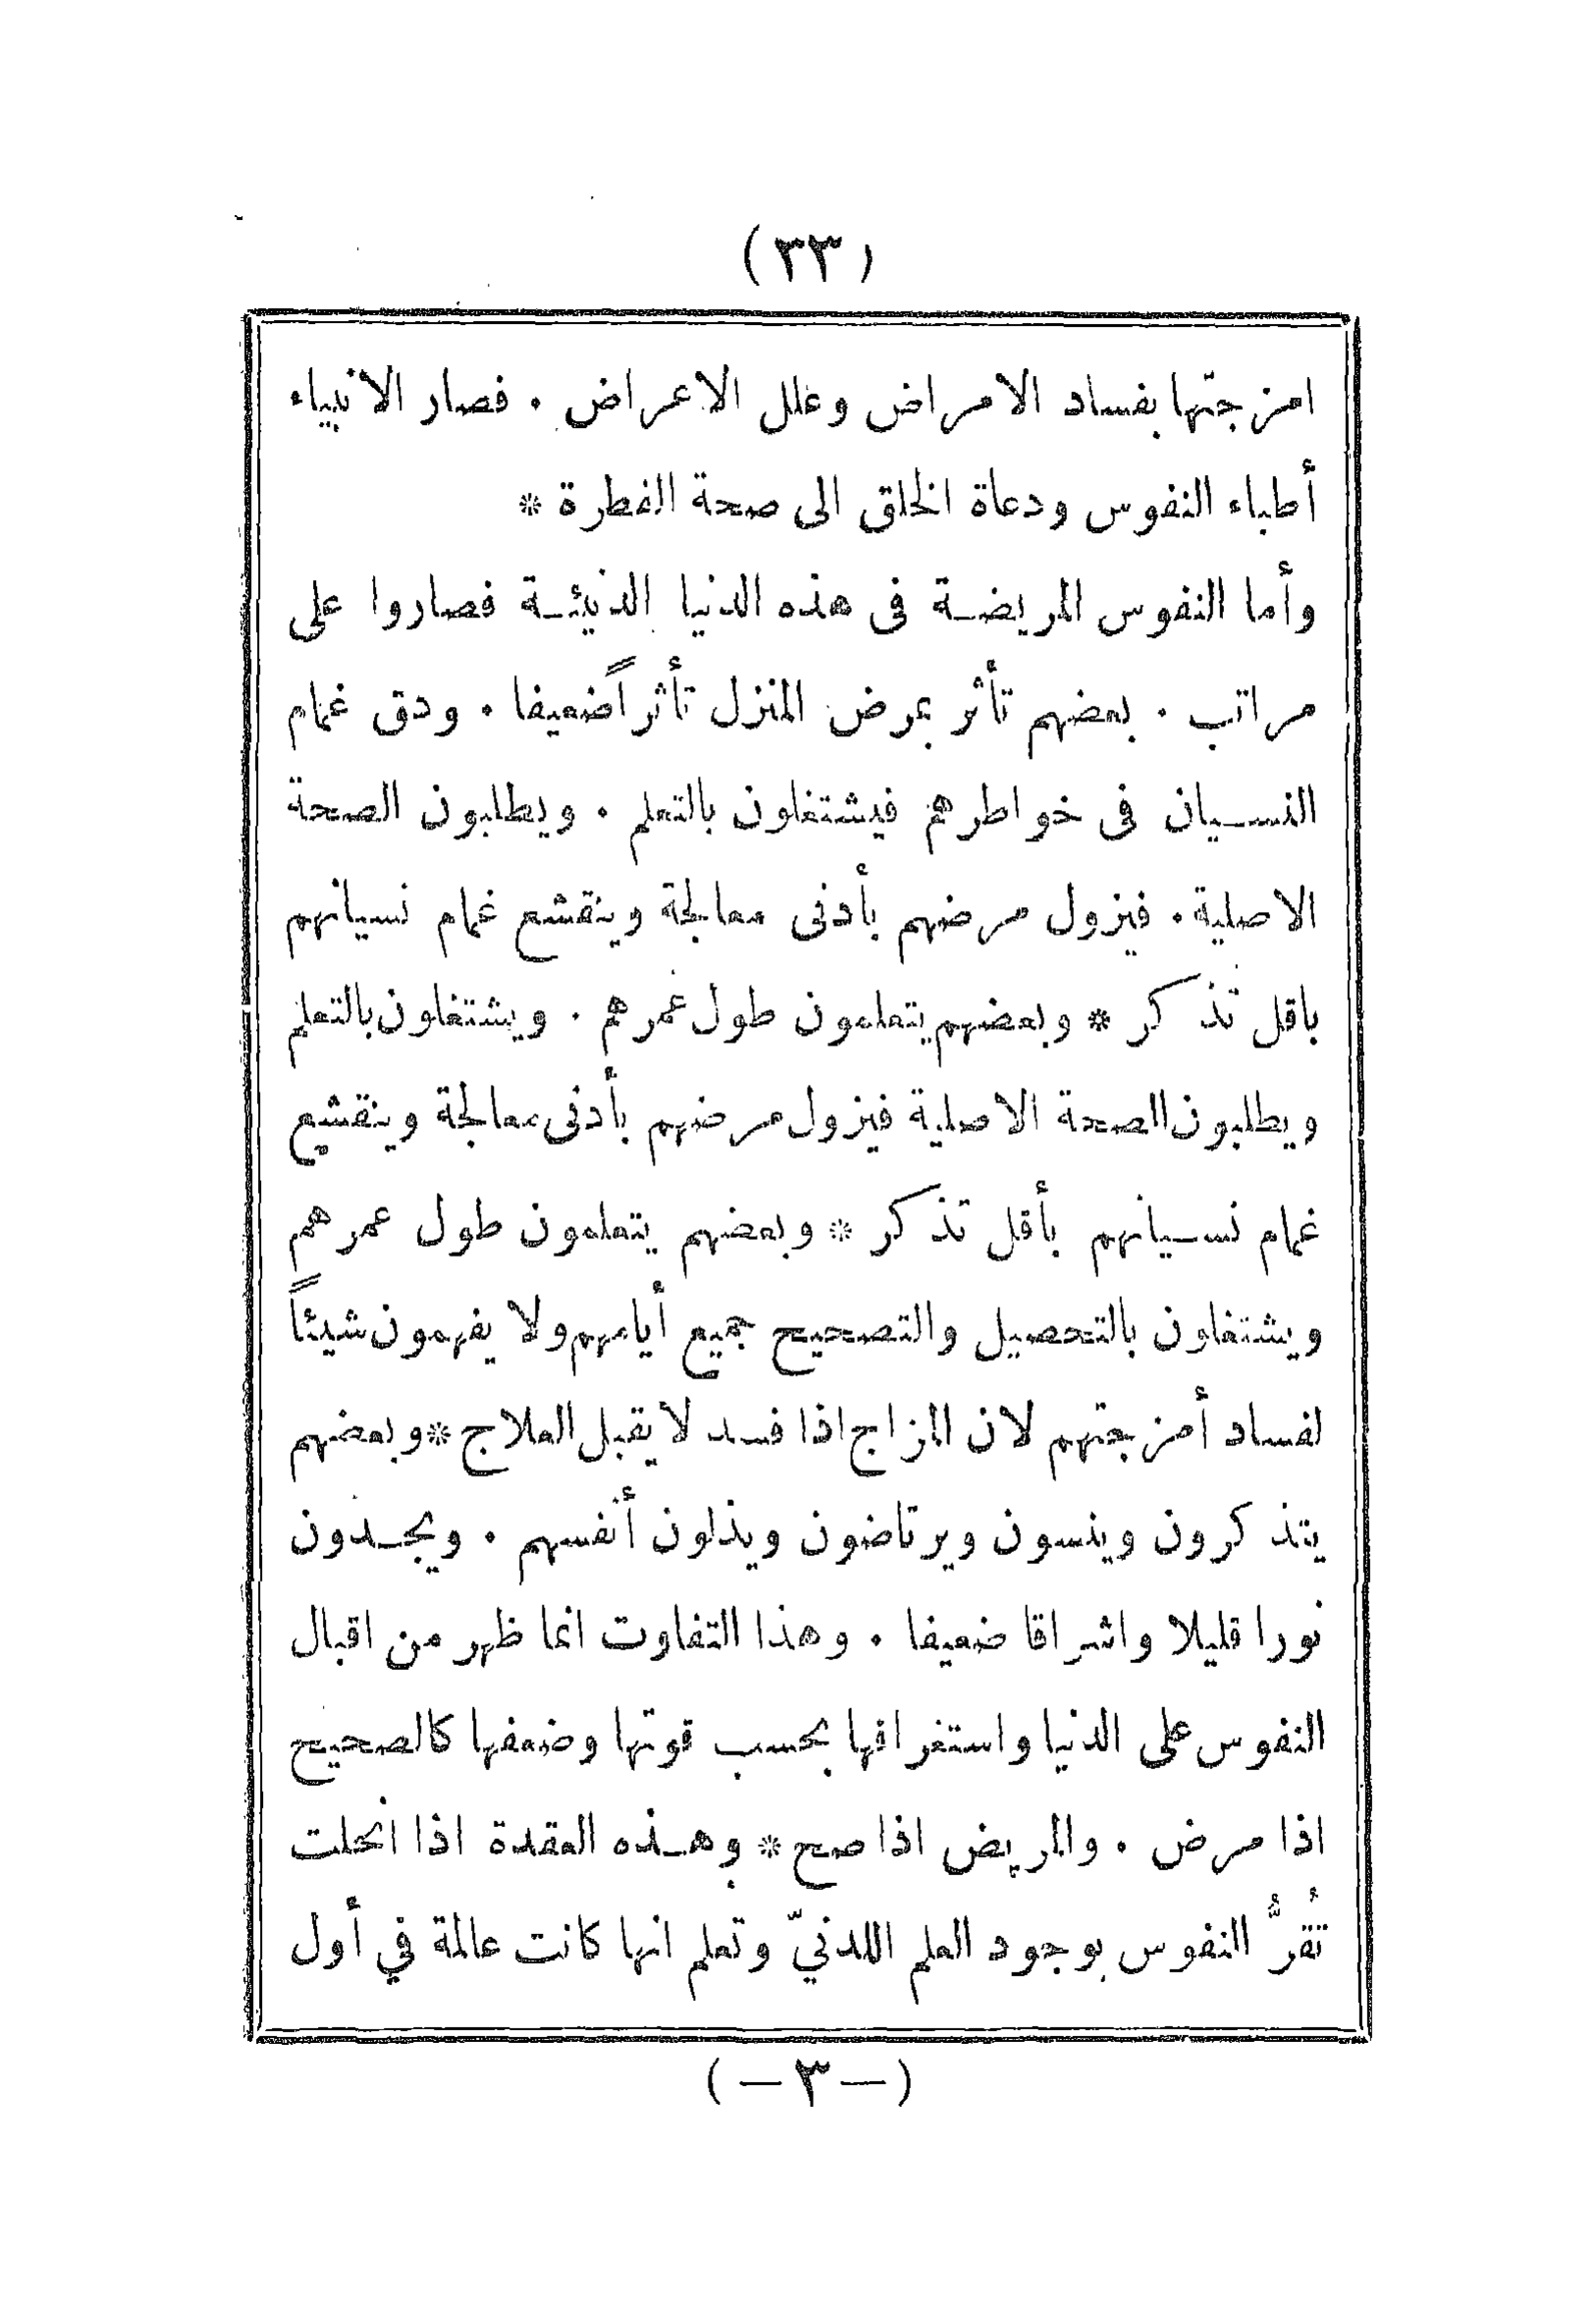 (٣٣)
امزجتها بفساد الامراض وعلل الاعراض . فصار الانبياء
أطباء النفوس ودعاة الخلق الى صحة الفطرة *
وأما النفوس المريضة فى هذه الدنيا الدنيئة فصاروا على
مراتب . بعضهم تأثر بمرض المنزل تأثراً ضعيفا . ودق غمام
النسيان فى خواطرهم فيشتغلون بالتعلم . ويطلبون الصحة
الاصلية . فيزول مرضهم بأدنى معالجة وينقشع غمام نسيانهم
باقل تذكر * وبعضهم يتعلمون طول عمرهم . ويشتغلون بالتعلم
ويطلبون الصحة الاصلية فيزول مرضهم بأدنى معالجة وينقشع
غمام نسيانهم بأقل تذكر * وبعضهم يتعلمون طول عمرهم
ويشتغلون بالتحصيل والتصحيح جميع أيامهم ولا يفهمون شيئاً
لفساد أمزجتهم لان المزاج اذا فسد لا يقبل العلاج * وبعضهم
يتذكرون وينسون ويرتاضون ويذلون أنفسهم . ويجدون
نورا قليلا واشراقا ضعيفا . وهذا التفاوت انما ظهر من اقبال
النفوس على الدنيا واستغراقها بحسب قوتها وضعفها كالصحيح
اذا مرض . والمريض اذا صح * وهذه العقدة اذا انحلت
تُقرُّ النفوس بوجود العلم اللدنيّ وتعلم انها كانت عالمة في أول
(—٣—)